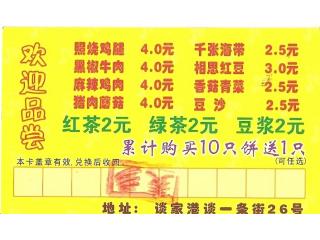 欢迎品尝
照烧鸡腿 4.0元 千张海带 2.5元
黑椒牛肉 4.0元 相思红豆 3.0元
麻辣鸡肉 4.0元 香菇青菜 2.5元
猪肉蘑菇 4.0元 豆沙 2.5元
红茶2元 绿茶2元 豆浆2元
累计购买10只饼送1只
本卡盖章有效,兑换后收回 (可任选)
地址: 谈家港谈一条街26号